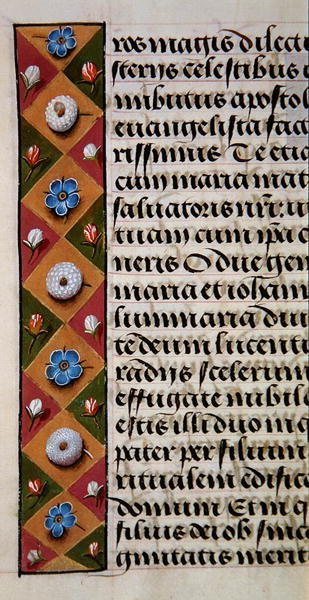 ros magis dilect
sterijs celestibus i
mbutus apostol
euangelista fac
rissimus Te etia
cum maria mat
saluatoris nr̄i: i
tuam cum ip̄a c
neris O due gem
maria et iohan
luminaria diu
te deum lucenti
radijs scelerum
effugate nubila
estis illi duo in q
pater per filium
ritualem edific
domum Et in q
filius dei ob since
ginitatis merit